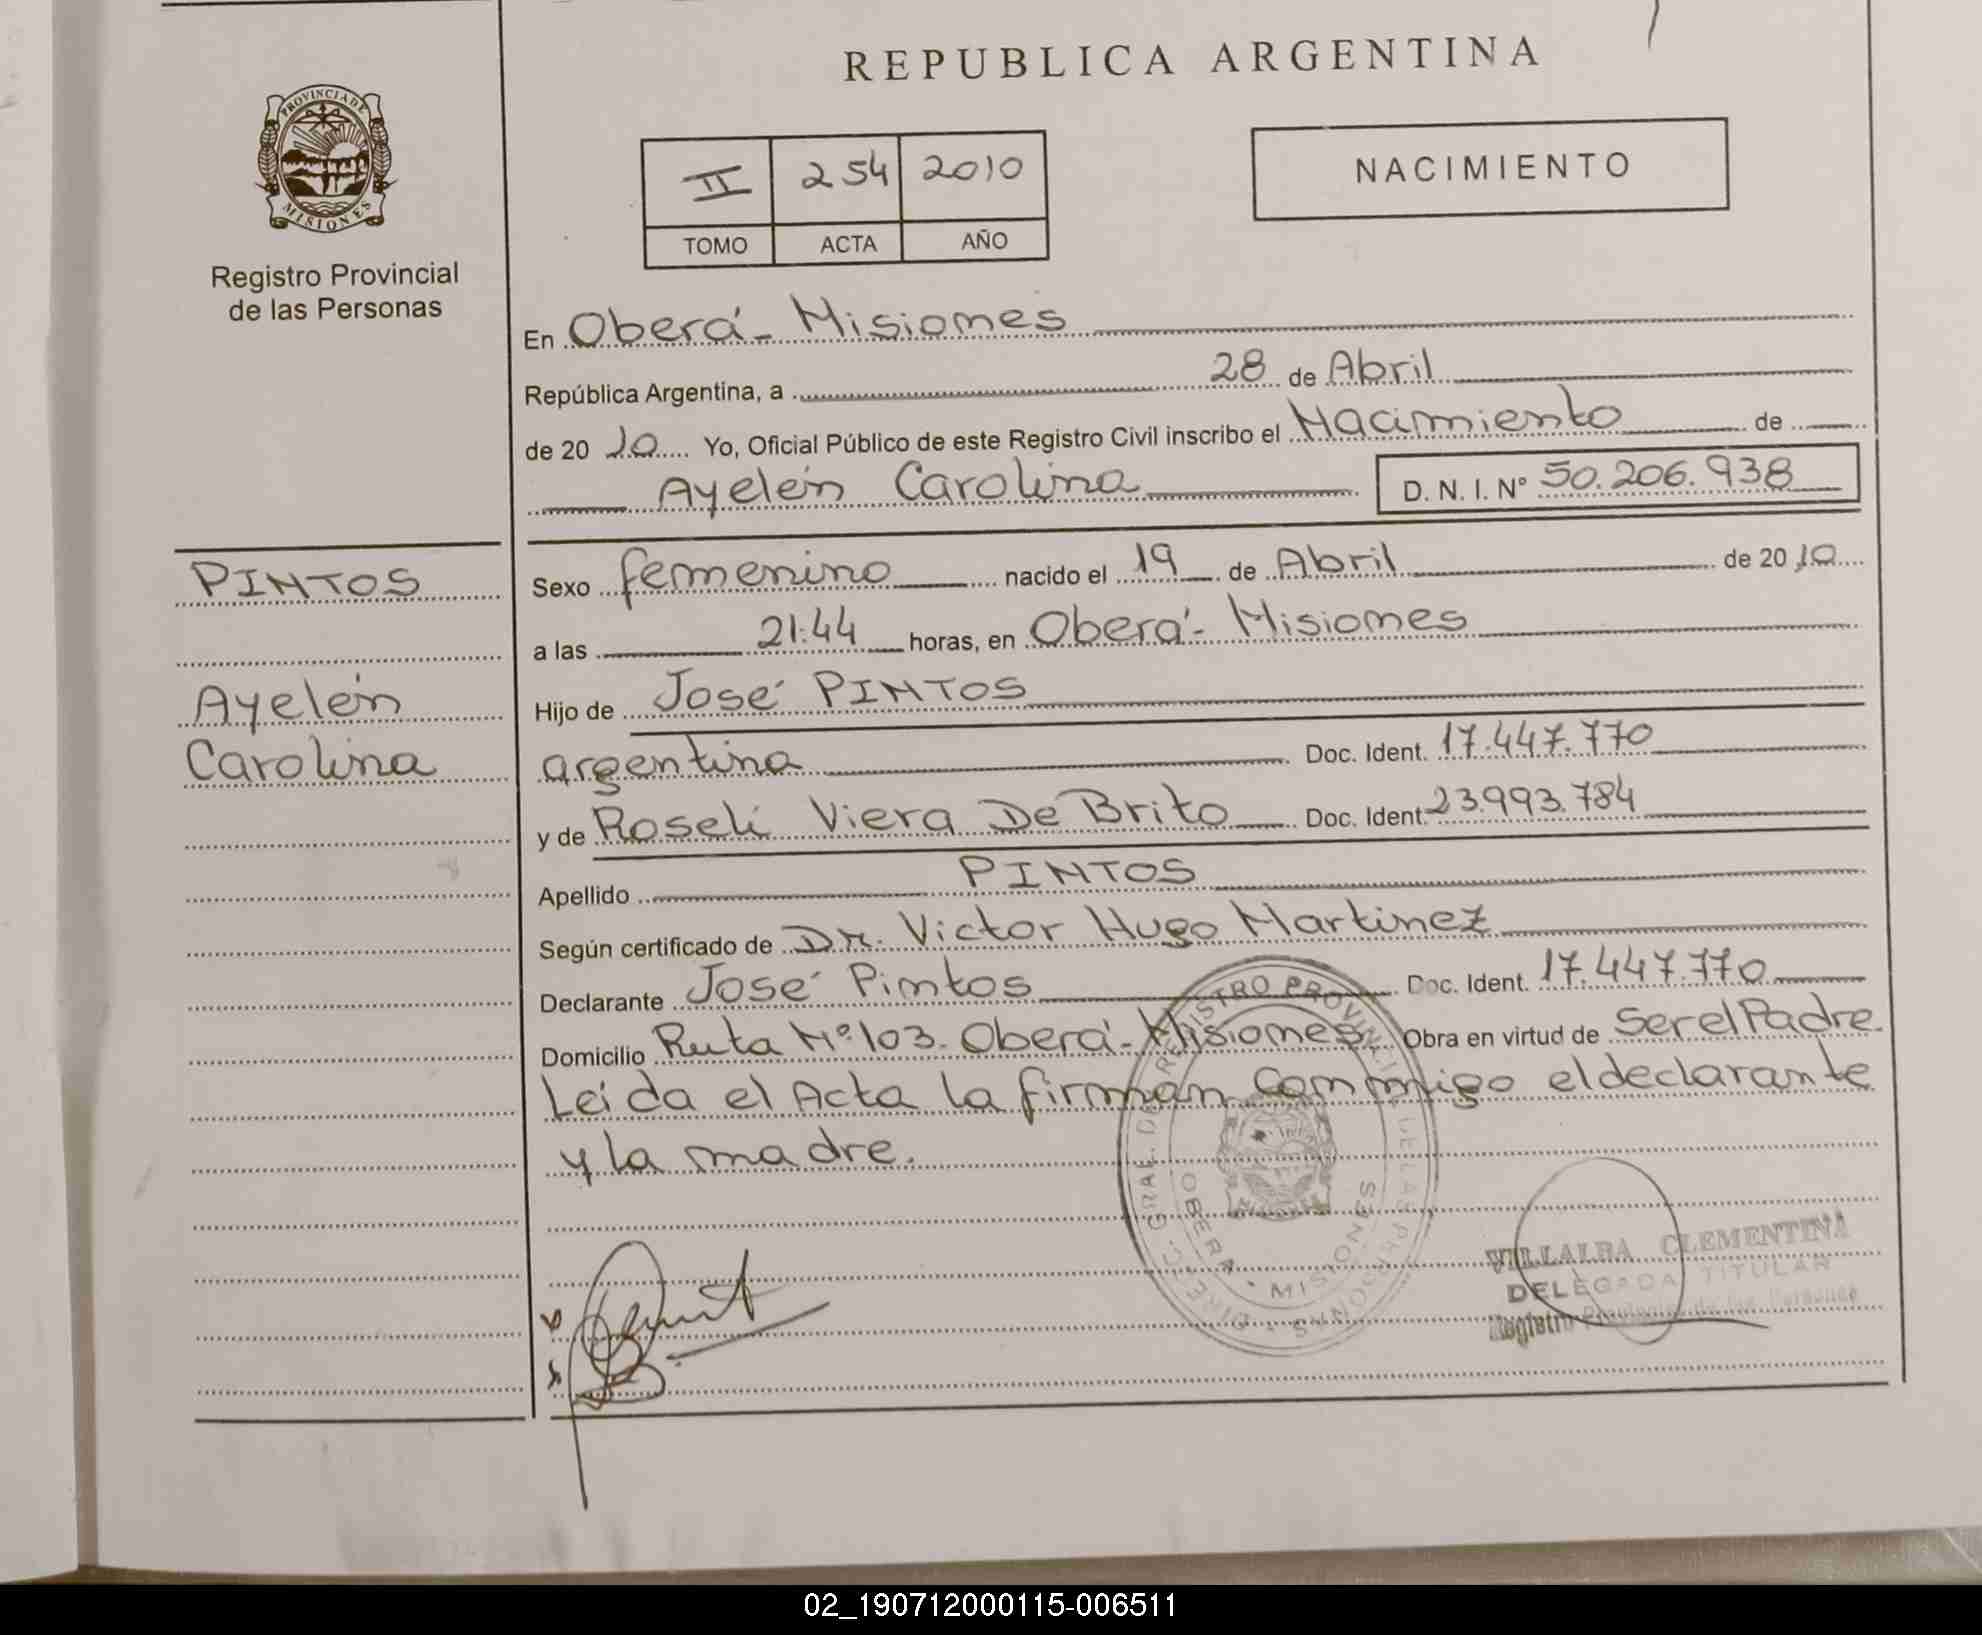 REPUBLICA ARGENTINA
PROVINCIA DE
MISIONES
Registro Provincial
de las Personas
II 254 2010
TOMO ACTA AÑO
NACIMIENTO
En Oberá - Misiones
República Argentina, a 28 de Abril
de 20 10 Yo, Oficial Público de este Registro Civil inscribo el Nacimiento de
Ayelén Carolina D. N. I. N° 50.206.938
PINTOS
Ayelén
Carolina
Sexo femenino nacido el 19 de Abril de 20 10
a las 21:44 horas, en Oberá - Misiones
Hijo de José PINTOS
argentina Doc. Ident. 17.447.770
y de Roseli Viera De Brito Doc. Ident. 23.993.784
Apellido PINTOS
Según certificado de Dr. Victor Hugo Martinez
Declarante José Pintos Doc. Ident. 17.447.770
Domicilio Ruta Nº 103. Oberá - Misiones Obra en virtud de Ser el Padre.
Leida el Acta la firman conmigo el declarante
y la madre.
DIREC. GRAL. DE REGISTRO PROVINCIAL DE LAS PERSONAS
OBERA • MISIONES
VILLALBA CLEMENTINA
DELEGADA TITULAR
Registro Provincial de las Personas
02_190712000115-006511